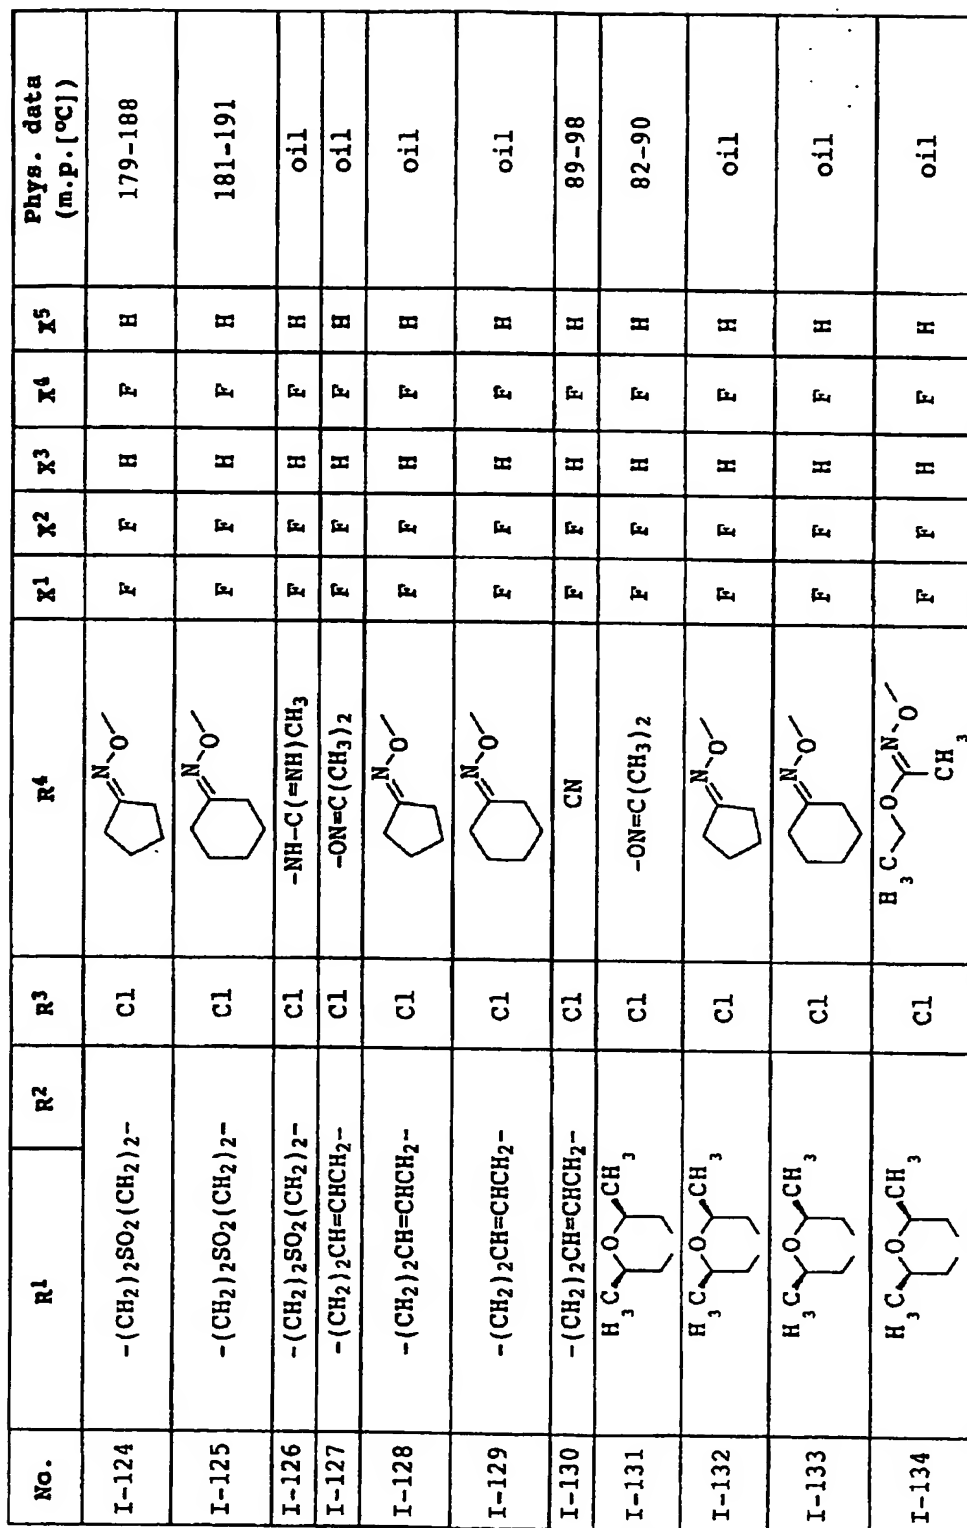 No. R¹ R² R³ R⁴ X¹ X² X³ X⁴ X⁵ Phys. data (m.p.[°C])
I-124 -(CH₂)₂SO₂(CH₂)₂- Cl N O F F H F H 179-188
I-125 -(CH₂)₂SO₂(CH₂)₂- Cl N O F F H F H 181-191
I-126 -(CH₂)₂SO₂(CH₂)₂- Cl -NH-C(=NH)CH₃ F F H F H oil
I-127 -(CH₂)₂CH=CHCH₂- Cl -ON=C(CH₃)₂ F F H F H oil
I-128 -(CH₂)₂CH=CHCH₂- Cl N O F F H F H oil
I-129 -(CH₂)₂CH=CHCH₂- Cl N O F F H F H oil
I-130 -(CH₂)₂CH=CHCH₂- Cl CN F F H F H 89-98
I-131 H₃C O CH₃ Cl -ON=C(CH₃)₂ F F H F H 82-90
I-132 H₃C O CH₃ Cl N O F F H F H oil
I-133 H₃C O CH₃ Cl N O F F H F H oil
I-134 H₃C O CH₃ Cl H₃C O N O CH₃ F F H F H oil